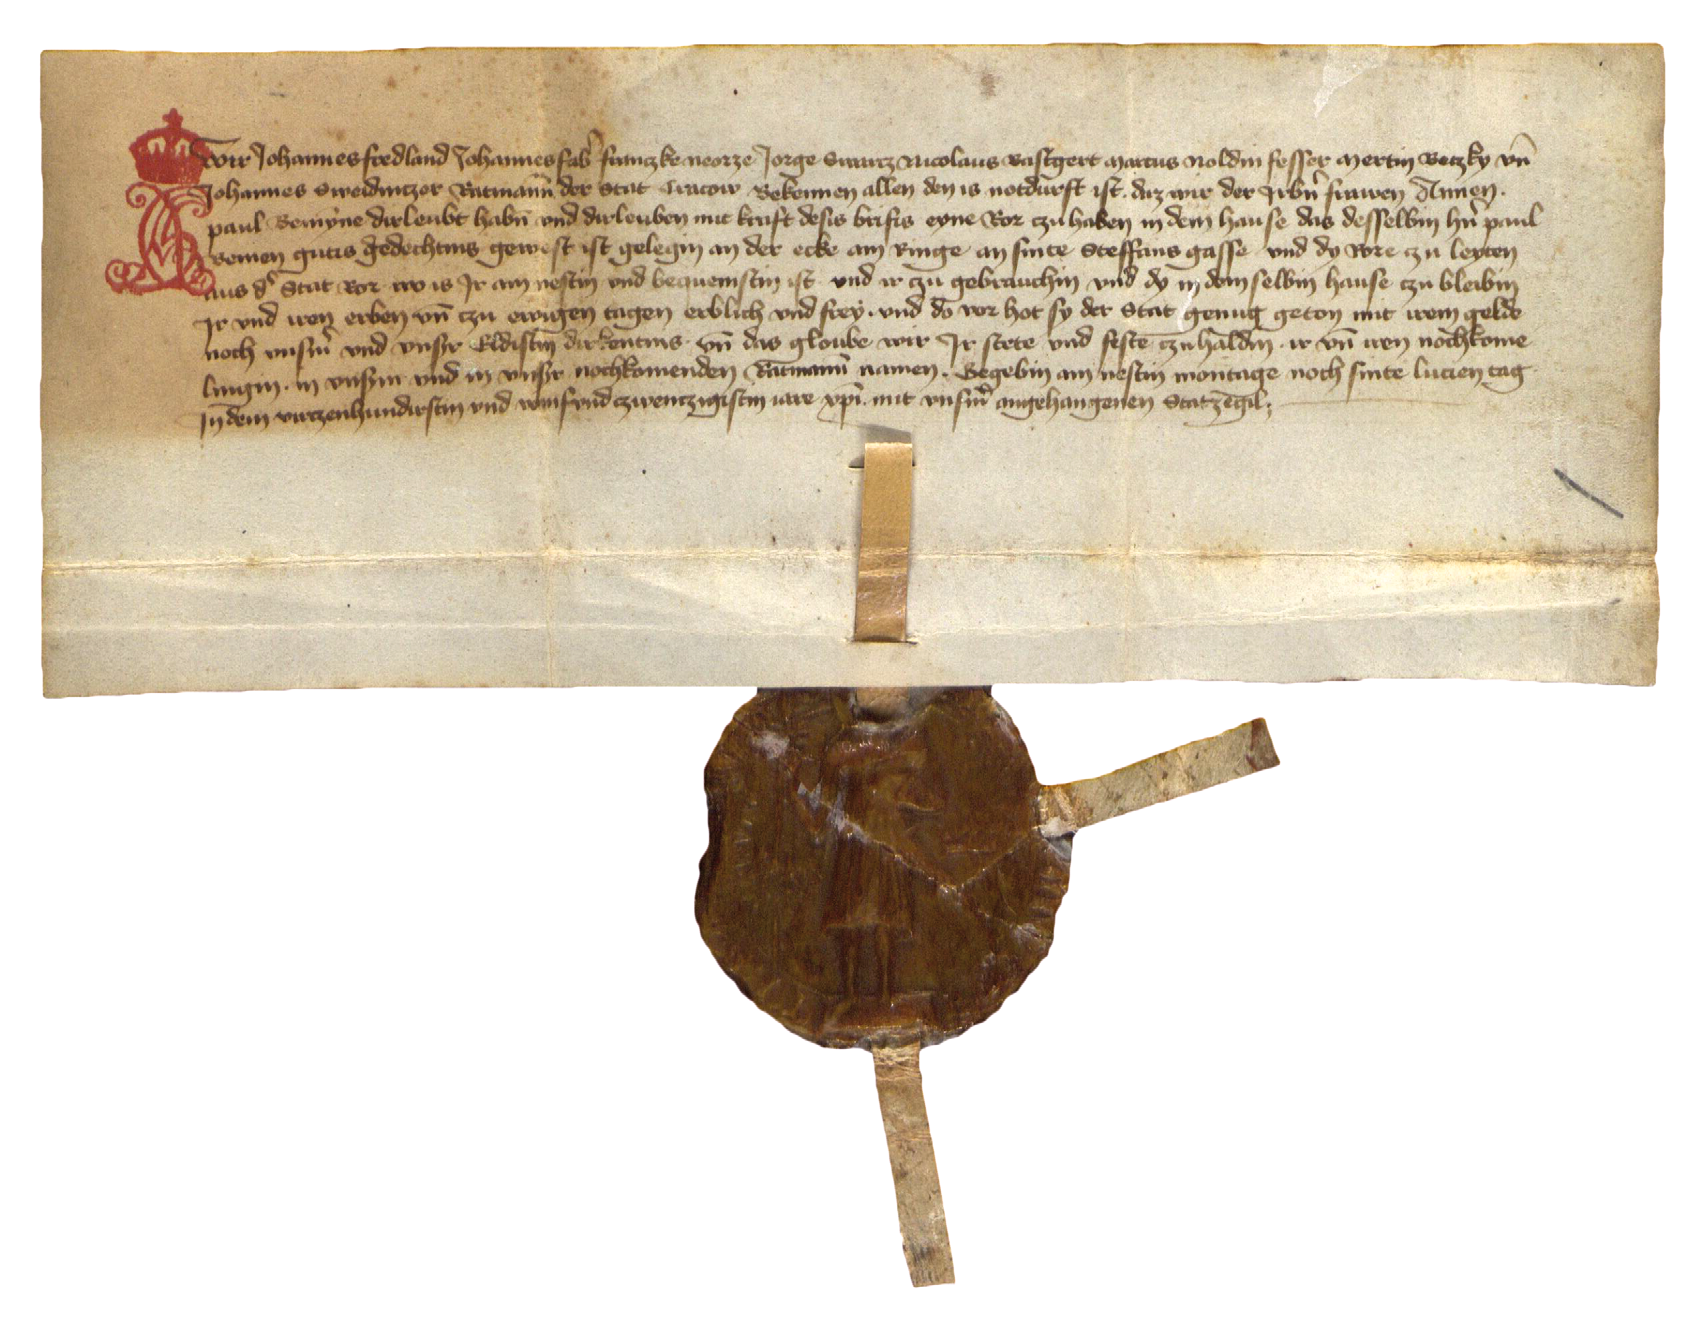 Wir Johannes fredland Johannes fab' franczke neorze Jorge Swarcz Nicolaus Bastgert Marcus Noldinfesser Mertin Beczky vn̄
Johannes Sweidniczer Ratman̄n der Stat Cracow Bekennen allen den is notdurft ist. daz wir der Irbn̄ frawen Annen.
paul Bemyne dirleubt habn̄ vnd dirleuben mit kraft desis brifis eyne Ror czu haben in dem hause das desselbin hn̄ paul
Bemen gutis gedechtnis gewest ist gelegin an der ecke am Ringe an sinte Steffans gasse vnd dy Rore czu leyten
aus d' Stat Ror wo is Ir am nestin vnd bequemstin ist vnd ir czu gebrauchin vnd dy in dem selbin hause czu bleibin
Ir vnd iren erben vn̄ czu ewigen tagen erblich vnd frey. vnd do vor hot sy der Stat genug geton mit irem gelde
noch vnsīr vnd vnsir Eldistin dirkentnis. vn̄ das gloube wir Ir stete vnd feste czu haldin. ir vn̄ iren nochkome
lingin. in vnsirm vnd in vnsir nochkomenden Ratman̄n namen. Begebin am nestin montage noch sinte lucien tag
In dem virczenhundirstin vnd czwenczigistin iare xp̄i. mit vnsīm angehangenen Statzegil.